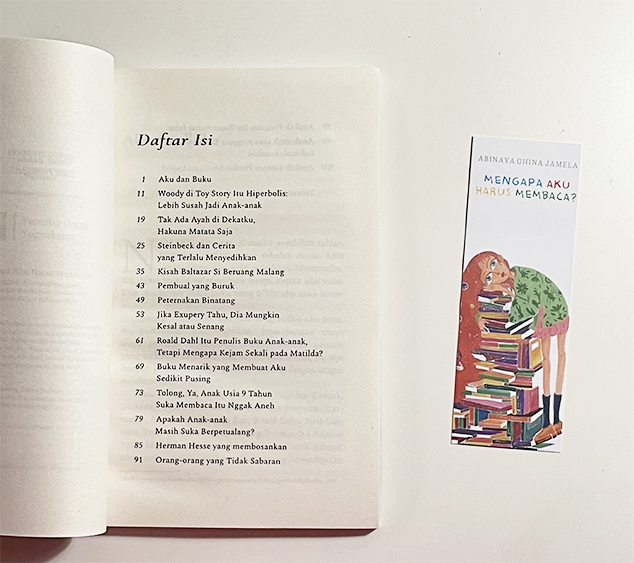 Daftar Isi
1 Aku dan Buku
11 Woody di Toy Story Itu Hiperbolis:
Lebih Susah Jadi Anak-anak
19 Tak Ada Ayah di Dekatku,
Hakuna Matata Saja
25 Steinbeck dan Cerita
yang Terlalu Menyedihkan
35 Kisah Baltazar Si Beruang Malang
43 Pembual yang Buruk
49 Peternakan Binatang
53 Jika Exupery Tahu, Dia Mungkin
Kesal atau Senang
61 Roald Dahl Itu Penulis Buku Anak-anak,
Tetapi Mengapa Kejam Sekali pada Matilda?
69 Buku Menarik yang Membuat Aku
Sedikit Pusing
73 Tolong, Ya, Anak Usia 9 Tahun
Suka Membaca Itu Nggak Aneh
79 Apakah Anak-anak
Masih Suka Berpetualang?
85 Herman Hesse yang membosankan
91 Orang-orang yang Tidak Sabaran
ABINAYA GHINA JAMELA
MENGAPA AKU
HARUS MEMBACA?